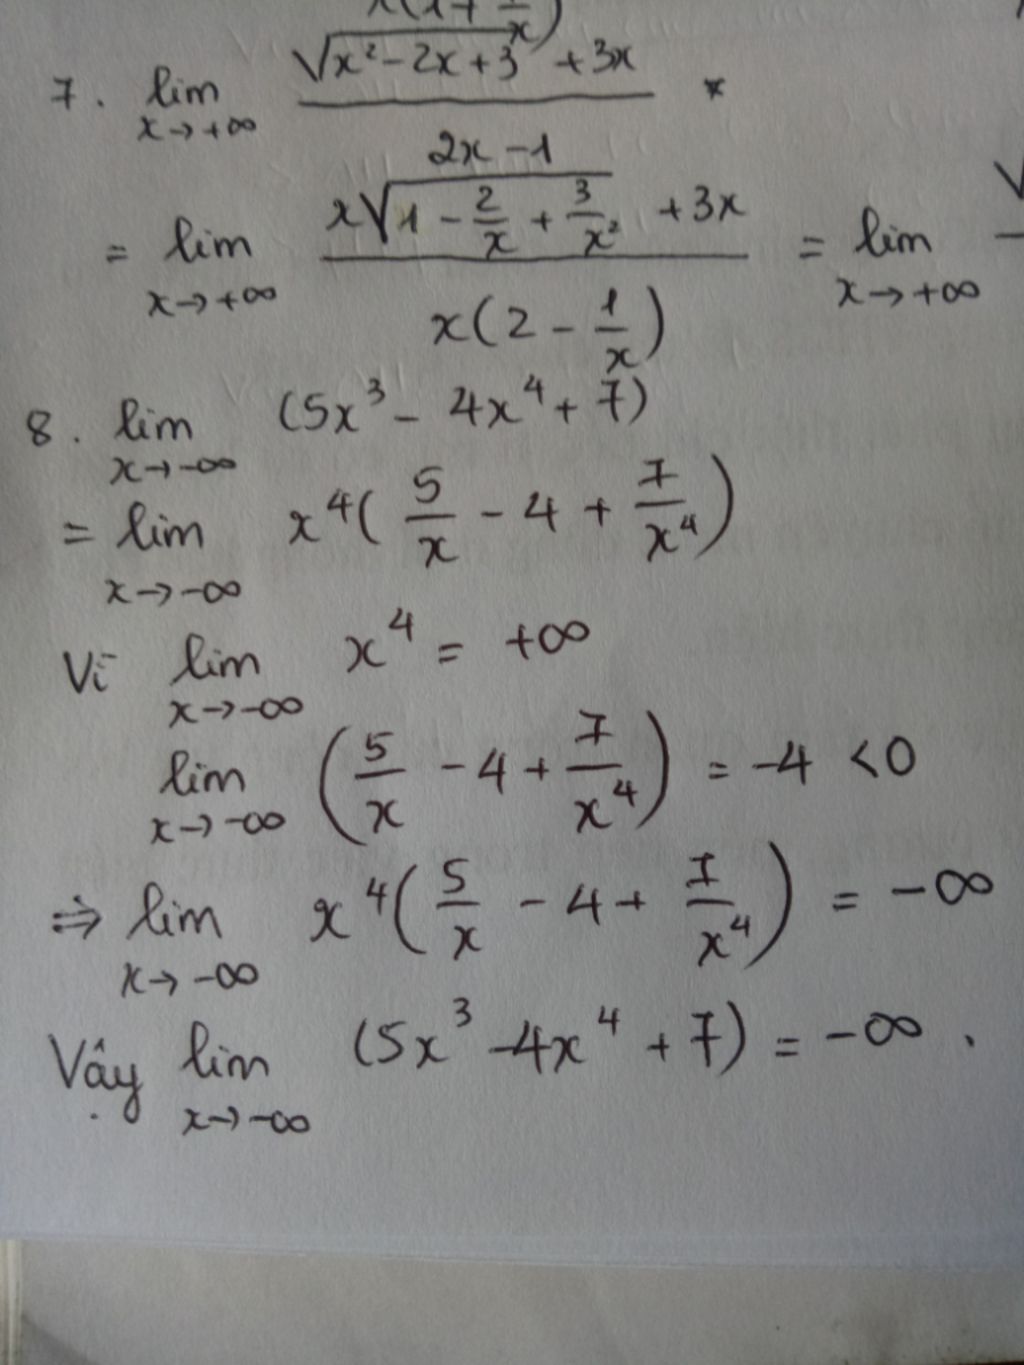 7. lim x→+∞ (√(x² − 2x + 3) + 3x) / (2x − 1)
= lim x→+∞ (x√(1 − 2/x + 3/x²) + 3x) / (x(2 − 1/x)) = lim x→+∞
8. lim x→−∞ (5x³ − 4x⁴ + 7)
= lim x→−∞ x⁴(5/x − 4 + 7/x⁴)
Vì lim x→−∞ x⁴ = +∞
lim x→−∞ (5/x − 4 + 7/x⁴) = −4 < 0
⇒ lim x→−∞ x⁴(5/x − 4 + 7/x⁴) = −∞
Vậy lim x→−∞ (5x³ − 4x⁴ + 7) = −∞.